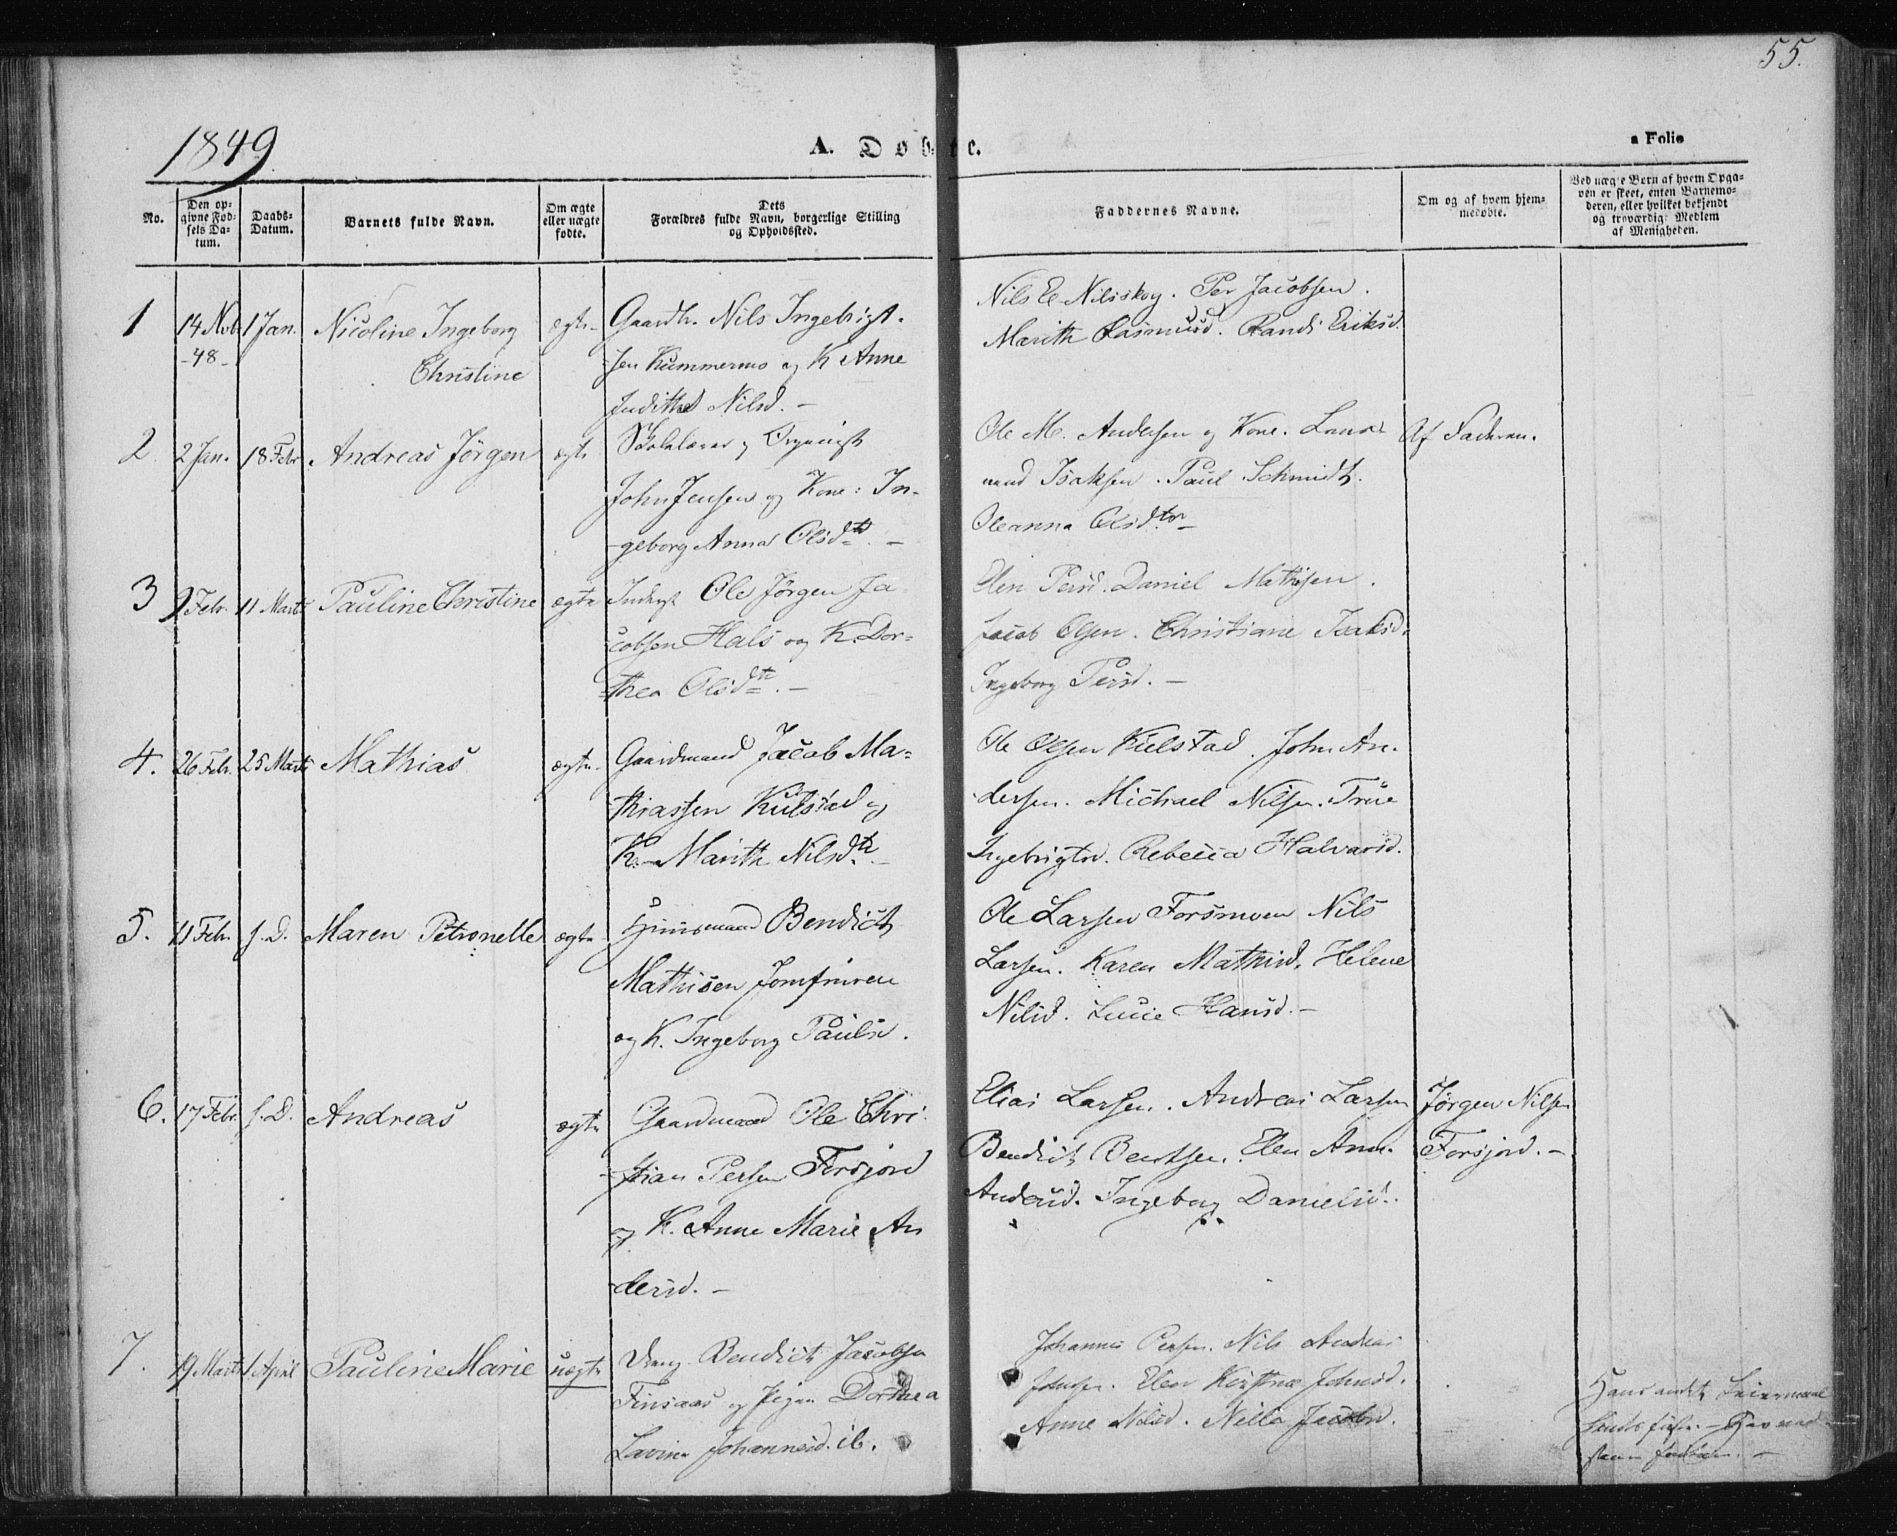 55.
1849
A. Døbte.
a Folio
No.
Den opgivne Fødsels Datum.
Daabs-Datum.
Barnets fulde Navn.
Om ægte eller uægte fødte.
Dets Forældres fulde Navn, borgerlige Stilling og Opholdssted.
Faddernes Navne.
Om og af hvem hjemmedøbte.
Ved uægte Børn af hvem Opgaven er skeet, enten Barnemoderen, eller hvilket bekjendt og troværdigt Medlem af Menigheden.
1 14 Nvb -48- 1 Jan. Nicoline Ingeborg Christine ægte
Gaardm. Nils Ingebrigt-
sen Kummermo og K Anne
Judithe Nilsd. -
Nils E Nilsskog. Per Jacobsen.
Marith Rasmusd. Randi Eriksd.
2 2 Jan. 18 Febr Andreas Jørgen ægte
Skolelærer og Organist
John Jensen og Kone: In-
geborg Anna Olsdtr. -
Ole M. Andersen og Kone. Laur
Isaksen. Paul Schmidt.
Oleanna Olsdtr -
Af Faderen.
3 9 Febr. 11 Marts Pauline Christine ægte
Inderst Ole Jørgen Ja
cobsen Hals og K. Dor-
thea Olsdtr. -
Elen Persd. Daniel Mathisen.
Jacob Olsen. Christiane Isaksd.
Ingeborg Persd. -
4. 26 Febr. 25 Marts Mathias ægte
Gaardmand Jacob Ma-
thiassen Kulstad og
K. Marith Nilsdtr. -
Ole Olsen Kulstad. John An-
dersen. Michael Nilsen. Trine
Ingebrigtsd. Rebecca Halvorsd.
5. 11 Febr. s. D. Maren Petronelle ægte
Huusmand Bendict
Mathisen Jomfruren
og K. Ingeborg Paulsd.
Ole Larsen Forsmoen Nils
Larsen. Karen Mathisd. Helene
Nilsd. Lucie Hansd. -
6. 17 Febr. s. D. Andreas ægte
Gaardmand Ole Chri-
stian Persen Forsjord
og K. Anne Marie An
dersd. -
Elias Larsen. Andreas Larsen
Bendict Bentsen. Elen Ann.
Andersd. Ingeborg Danielsd.
Jørgen Nilsen
Forsjord. -
7. 19 Marts 1 April Pauline Marie uægte
Dreng Bendict Jacobsen
Finsaas og Pigen Dorthea
Lavina Johannesd. ib.
Johannes Persen. Nils Andreas
Johnsen. Elen Kirstine Johnsd.
Anne Nilsd. Nella Jacobsd.
Hans andet Leiermaal